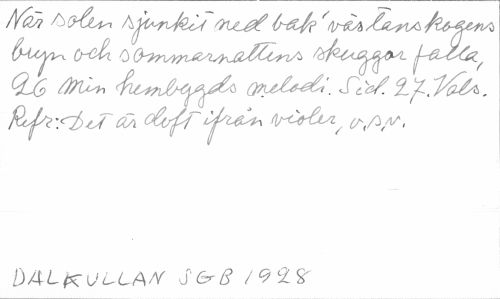 När solen sjunkit ned bak' västanskogens
bryn och sommarnattens skuggor falla,
26 Min hembygds melodi. Sid. 27. Vals.
Refr: Det är doft ifrån violer, o.s.v.
DALKULLAN SGB 1928